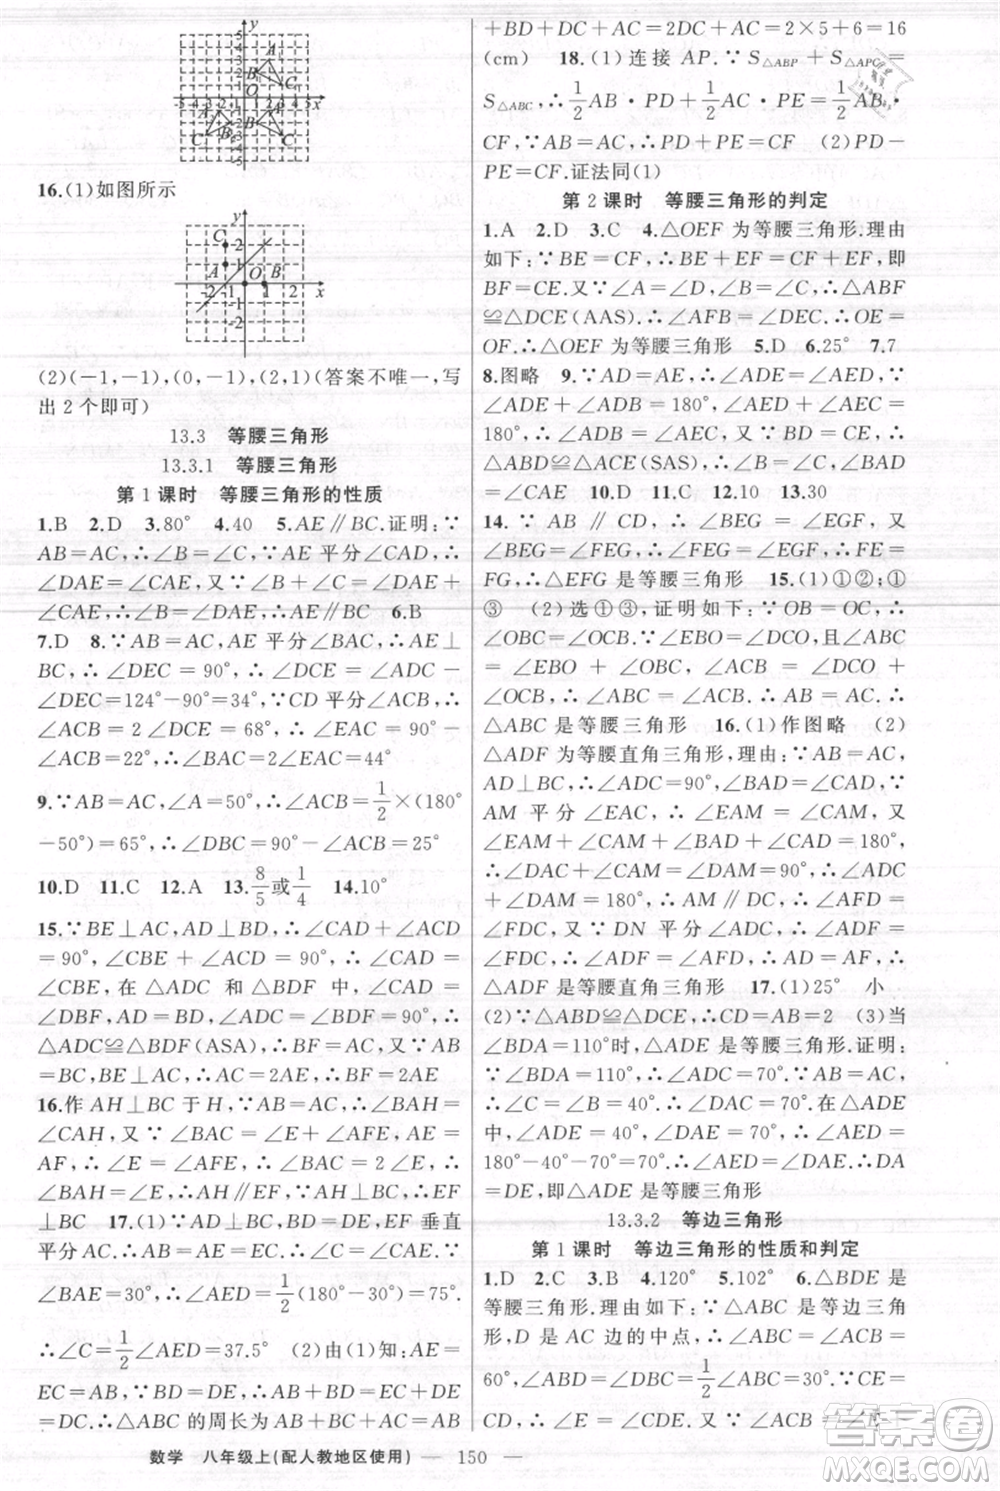 16.(1)如图所示
(2)(-1,-1),(0,-1),(2,1)(答案不唯一,写
出2个即可)
13.3 等腰三角形
13.3.1 等腰三角形
第1课时 等腰三角形的性质
1.B 2.D 3.80° 4.40 5.AE∥BC.证明:∵
AB=AC,∴∠B=∠C,∵AE平分∠CAD,∴
∠DAE=∠CAE,又∵∠CAD=∠B+∠C,∴
∠CAE=∠C,∴AE∥BC 6.B
7.D 8.∵AB=AC,AE平分∠BAC,∴AE⊥
BC,∴∠DEC=90°,∴∠DCE=∠ADC-
∠DEC=124°-90°=34°,∵CD平分∠ACB,∴
∠ACB=2∠DCE=68°,∴∠BAC=180°-2
∠ACB=22°,∴∠BAC=44°
9.∵AB=AC,∠A=50°,∴∠ACB=1/2×(180°
-50°)=65°,∴∠DBC=90°-∠ACB=25°
10.D 11.C 12.A 13.8/5或1/4 14.10°
15.∵BE⊥AC,AD⊥BD,∴∠CAD+∠ACD
=90°,∠CBE+∠ACD=90°,∴∠CAD=
∠CBE,在△ADC和△BDF中,∠CAD=
∠DBF,AD=BD,∠ADC=∠BDF=90°,∴
△ADC≌△BDF(ASA),∴BF=AC,∵AB=
BC,BE⊥AC,∴AC=2AE,∴BF=2AE
16.作AH⊥BC于H,∵AB=AC,∴∠BAH=
∠CAH,又∵∠BAC=∠E+∠AFE,AE=
AF,∴∠E=∠AFE,∴∠BAC=2∠E,∴∠E
=∠BAH,∴AH∥EF,∵AH⊥BC,∴EF
⊥BC 17.(1)∵AD⊥BC,BD=DE,EF垂直
平分AC,∴AB=AE=EC,∴∠C=∠CAE,∵
∠BAE=30°,∴∠AED=1/2(180°-30°)=75°,
∴∠C=1/2∠AED=37.5° (2)由(1)知:AE=
EC=AB,∵BD=DE,∴AB+BD=EC+DE=
DC,∴△ABC的周长为AB+BC+AC=AB
+BD+DC+AC=2DC+AC=2×5+6=16
(cm) 18.(1)连接AP.∵S△ABP+S△APC=
S△ABC,∴1/2AB·PD+1/2AC·PE=1/2AB·
CF,∵AB=AC,∴PD+PE=CF (2)PD-
PE=CF.证法同(1)
第2课时 等腰三角形的判定
1.A 2.D 3.C 4.△OEF为等腰三角形.理由
如下:∵BE=CF,∴BE+EF=CF+EF,即
BF=CE.又∵∠A=∠D,∠B=∠C,∴△ABF
≌△DCE(AAS),∴∠AFB=∠DEC,∴OE=
OF.∴△OEF为等腰三角形 5.D 6.25° 7.7
8.图略 9.∵AD=AE,∴∠ADE=∠AED,∵
∠ADE+∠ADB=180°,∠AED+∠AEC=
180°,∴∠ADB=∠AEC,又∵BD=CE,∴
△ABD≌△ACE(SAS),∴∠BAD
=∠CAE 10.D 11.C 12.10 13.30
14.∵AB∥CD,∴∠BEG=∠EGF,又
∠BEG=∠FEG,∴∠FEG=∠EGF,∴FE=
FG,∴△EFG是等腰三角形 15.(1)①②;①
③ (2)选①③,证明如下:∵OB=OC,∴
∠OBC=∠OCB.∵∠EBO=∠DCO,又∵
∠ABC=∠EBO+∠OBC,∠ACB=∠DCO+
∠OCB,∴∠ABC=∠ACB,∴AB=AC,∴
△ABC是等腰三角形 16.(1)作图略 (2)
△ADF为等腰直角三角形,理由:∵AB=AC,
AD⊥BC,∴∠BAD=∠CAD,∵
AM平分∠EAC,∴∠EAM=∠CAM,又
∠EAM+∠CAM+∠BAD+∠CAD=180°,
∴∠CAD+∠CAM=∠DAM=90°,∵∠ADC
+∠DAM=180°,∴AM∥BC,∴∠AFD=
∠FDC,又∵DN平分∠ADC,∴∠ADF=
∠FDC=∠AFD,∴AD=AF,∴△ADF是
等腰直角三角形 17.(1)25° 小
(2)∵△ABD≌△DCE,∴CD=AB=2 (3)当
∠BDA=110°时,△ADE是等腰三角形.证明:
∵∠BDA=110°,∴∠ADC=70°,∵AB=AC,
∴∠C=∠B=40°,∴∠DAC=70°,∵△ADE
中,∠ADE=40°,∠DAC=70°,∴∠AED=
180°-40°-70°=70°,∴∠AED=∠DAE,∴DA
=DE,即△ADE是等腰三角形
13.3.2 等边三角形
第1课时 等边三角形的性质和判定
1.D 2.C 3.B 4.120° 5.102° 6.△BDE是
等腰三角形.理由如下:∵△ABC是等边三角
形,D是AC边的中点,∴∠ABC=∠ACB=
60°,∠DBE=1/2∠ABC=30°.∵CE=
CD,∴∠E=∠CDE,∵∠ACB=∠E+
数学 八年级上(配人教地区使用) — 150 —
答案圈